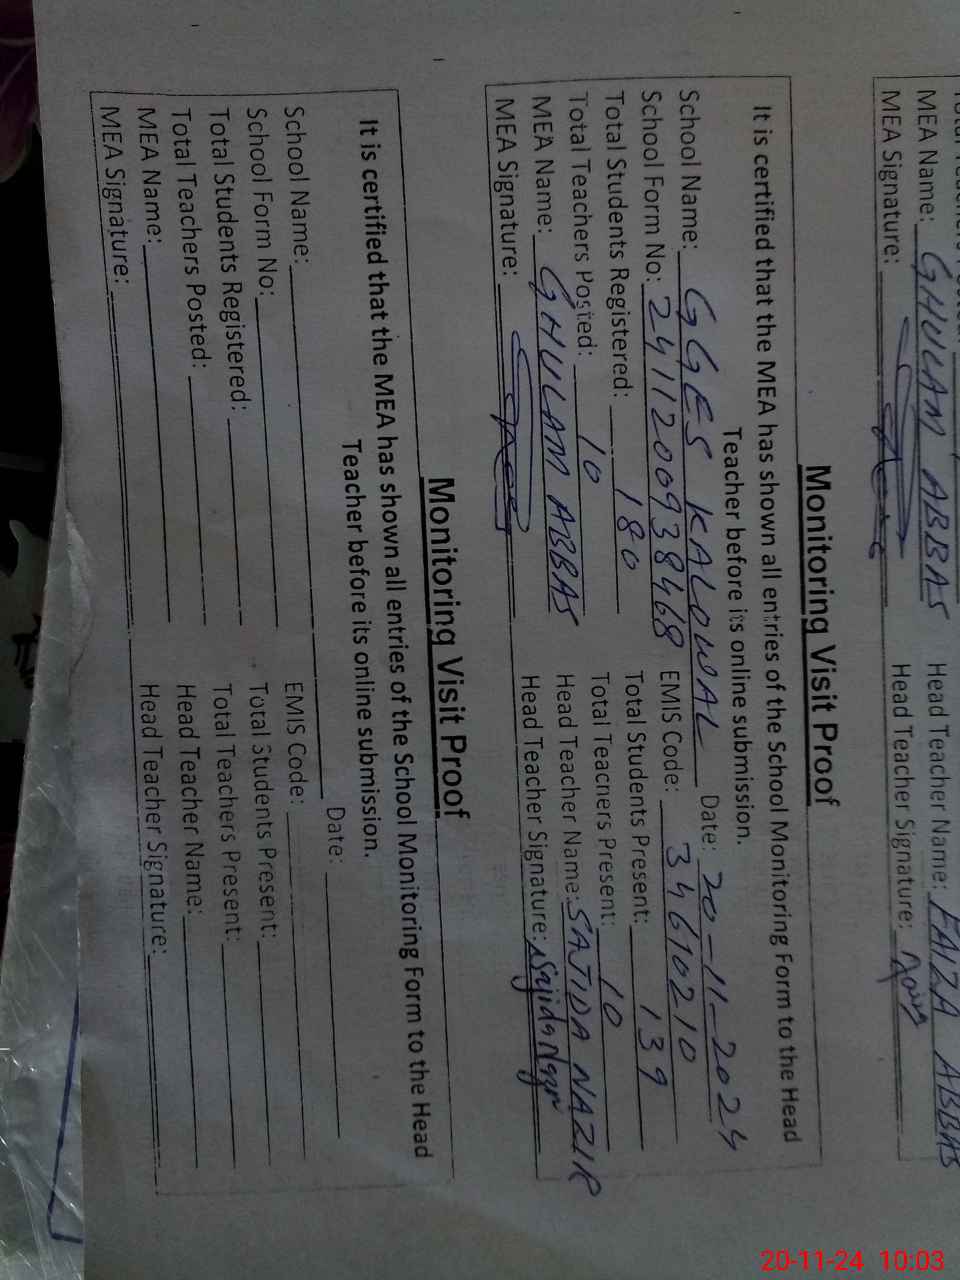 MEA Name: GHULAM ABBAS Head Teacher Name: FAIZA ABBAS
MEA Signature: Head Teacher Signature:
Monitoring Visit Proof
It is certified that the MEA has shown all entries of the School Monitoring Form to the Head
Teacher before its online submission.
School Name: GGES KALOWAL Date: 20-11-2024
School Form No: 2411200938468 EMIS Code: 34610210
Total Students Registered: 180 Total Students Present: 139
Total Teachers Posted: 10 Total Teachers Present: 10
MEA Name: GHULAM ABBAS Head Teacher Name: SAJIDA NAZIR
MEA Signature: Head Teacher Signature: Sajida Nazir
Monitoring Visit Proof
It is certified that the MEA has shown all entries of the School Monitoring Form to the Head
Teacher before its online submission.
School Name: Date:
School Form No: EMIS Code:
Total Students Registered: Total Students Present:
Total Teachers Posted: Total Teachers Present:
MEA Name: Head Teacher Name:
MEA Signature: Head Teacher Signature:
20-11-24 10:03